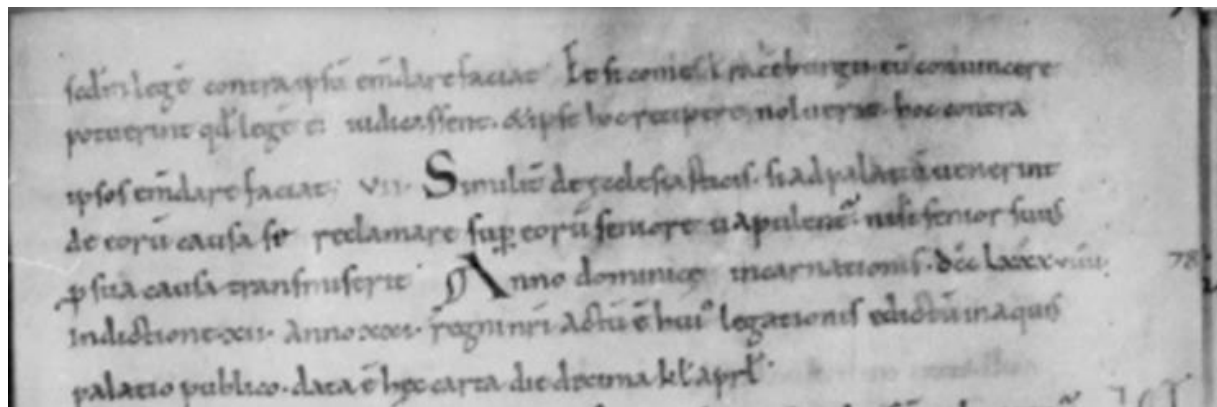 scdm legē contra ipsū em̄dare faciat Et si comes l raceburgii eū convincere
potuerint qđ legē ei iudicassent. & ipse hoc recipere noluerit. hoc contra
ipsos em̄dare faciat; VII. Similit̄ de ęcclesiasticis. si ad palatiū venerint
de eorū causa se reclamare sup eorū seniore vapulent̄. nisi senior suus
p sua causa transmiserit Anno dominicę incarnationis. dcc lxxx viiii. 78
Indictione. xii. Anno xxi. regni nr̄i actū ē hui' legationis edictū in aquis
palatio publico. data ē hęc carta die decima kł aprł.